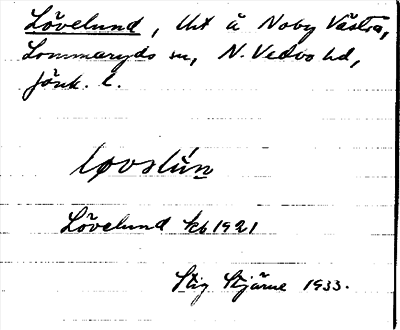 Lövelund, Uts å Noby Västra,
Lommaryds sn, N. Vedbo hd,
Jönk. l.
løvslún
Lövelund kb 1921
Stig Stjärne 1933.